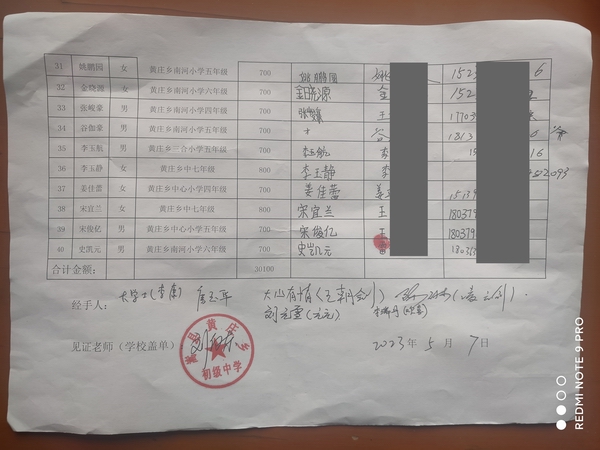 31 姚鹏园 女 黄庄乡南河小学五年级 700 姚鹏园 姚 152 6
32 金晓源 女 黄庄乡南河小学六年级 700 金晓源 金 152
33 张峻豪 男 黄庄乡南河小学四年级 700 王 17703
34 谷伽豪 男 黄庄乡南河小学五年级 700 谷 1813 6
35 李玉航 男 黄庄乡三合小学五年级 700 李玉航 李 15 16
36 李玉静 女 黄庄乡中七年级 800 李玉静 李 2093
37 姜佳蕾 女 黄庄乡中心小学四年级 700 姜佳蕾 姜 15139
38 宋宜兰 女 黄庄乡中七年级 800 宋宜兰 王 180379
39 宋俊亿 男 黄庄乡中心小学五年级 700 宋俊亿 王 180379
40 史凯元 男 黄庄乡南河小学六年级 700 史凯元 180313
合计金额： 30100
经手人： 大学士(李南) 大山有情(王朝剑)
刘元雪(元元)
见证老师（学校盖单） 2023年 5 月 7日
黄庄乡
初级中学
REDMI NOTE 9 PRO